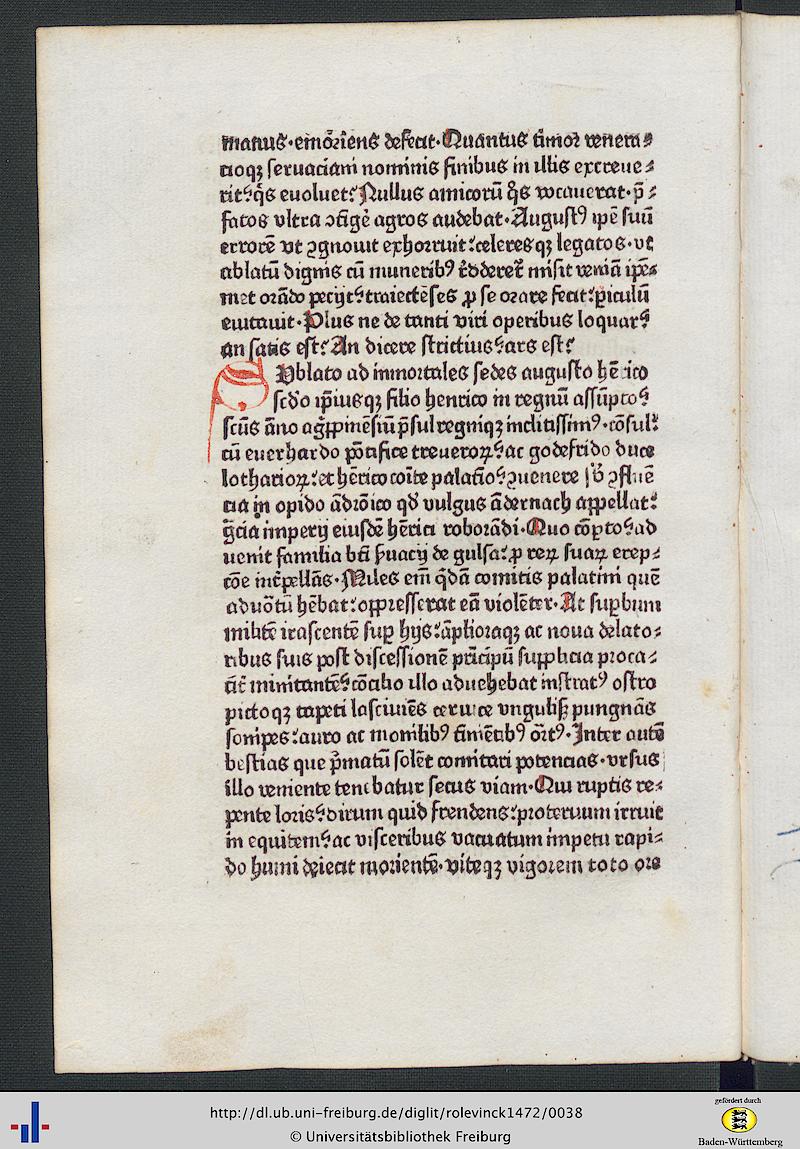 manus·emor̄iens defecit·Quantus timor venera⸗
cioqꝫ seruaciani nominis finibus in illis excreue⸗
rit:q̄s euoluet: Nullus amicorū q̄s vocauerat·p̄⸗
fatos vltra ꝯtigē agros audebat·Augustꝰ ip̄e suū
errorē vt ꝯgnouit exhorruit:celeresqꝫ legatos·vt
ablatū dignis cū muneribꝰ misit veniā ip̄e⸗
met orādo pecijt:traiectēses ꝓ se orare fecit:ꝑiculū
euitauit·Plus ne de tanti viri operibus loquar:
an satis est: An dicere strictius:ars est:
Vblato ad inmortales sedes augusto hēico
scd̄o ip̄iusqꝫ filio henrico in regnū assūpto:
scūs āno p̄sul regniqꝫ inclitissimꝰ·cōsul:
cū euerhardo pōtifice treueroꝝ:ac godefrido duce
lotharioꝝ:et hēricocoīte palatīo:ꝯuenere ꝯfluē
cia in opido ādrōico qd̄ vulgus ādernach appellat:
gr̄cia imperij eiusdē hērici roborādi·Quo cōꝑto:ad
uenit familia bt̄i ẜuacij de gulsa:ꝓ reꝝ suaꝝ erep⸗
cōe int̄pellās·Miles em̄ q̄dā comitis palatini quē
aduōtū hēbat:oppresserat eā violēter·At suꝑbum
militē irascentē suꝑ hijs:āplioraqꝫ ac noua delato⸗
ribus suis post discessionē prīcipū supplicia proca⸗
cit̄ minitantē:cōcilio illo aduehebat instratꝰ ostro
pictoqꝫ tapeti lasciuiēs ceruice vngulisꝫ pungnās
sonipes:auro ac monilibꝰ tinīētibꝰ ōrtꝰ·Inter autē
bestias que p̄matū solēt comitari potencias·vrsus
illo veniente tenebatur secus viam·Qui ruptis re⸗
pente loris:dirum quid frendens:proteruum irruit
in equitem:ac visceribus vacuatum impetu rapi⸗
do humi deiecit morientē·viteqꝫ vigorem toto ore
http://dl.ub.uni-freiburg.de/diglit/rolevinck1472/0038
© Universitätsbibliothek Freiburg
gefördert durch
Baden-Württemberg